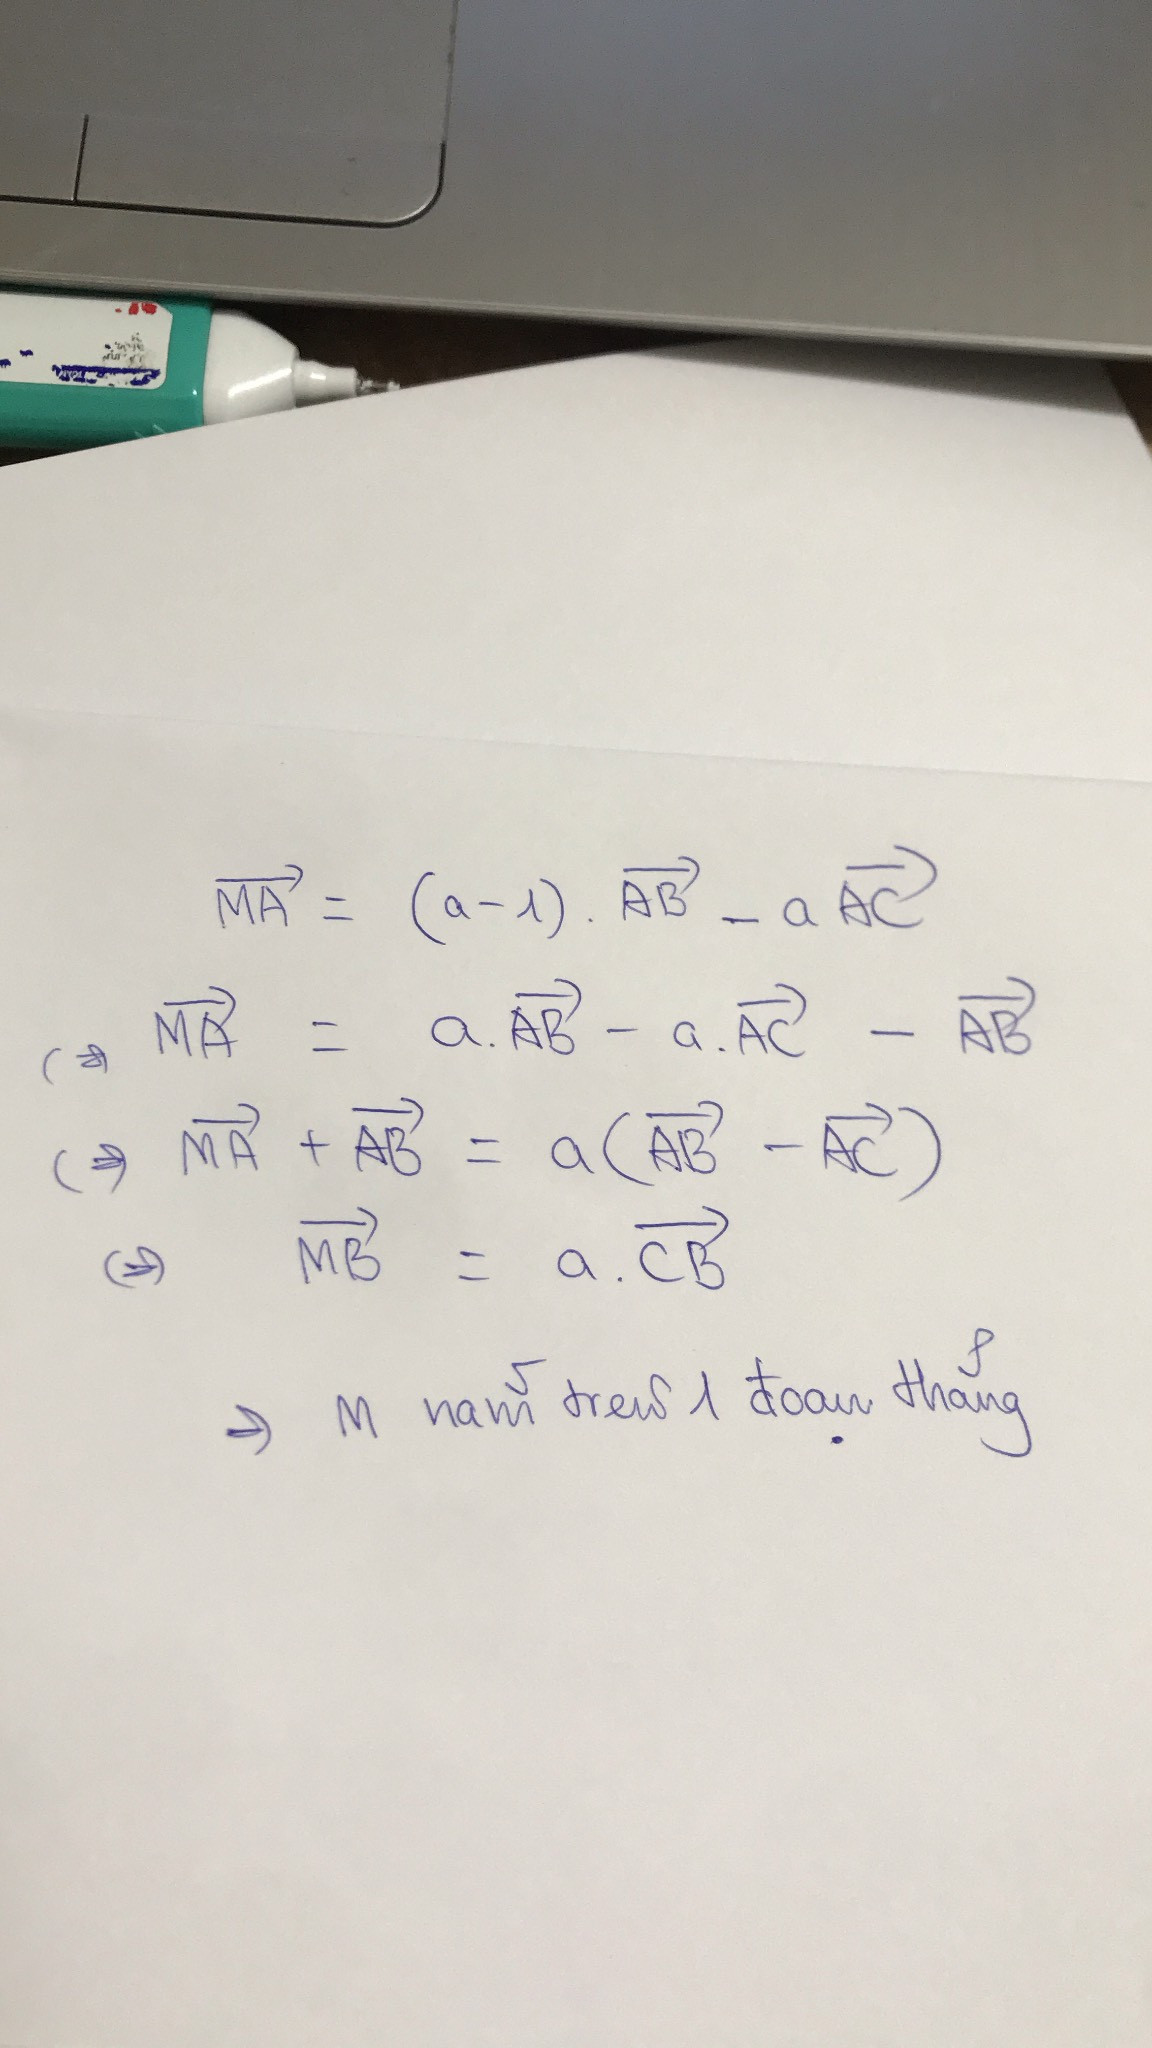 MA⃗ = (a-1). AB⃗ - a AC⃗
(⇒ MA⃗ = a.AB⃗ - a.AC⃗ - AB⃗
(⇒) MA⃗ + AB⃗ = a(AB⃗ - AC⃗)
(⇒) MB⃗ = a. CB⃗
⇒ M nằm trên 1 đoạn thẳng